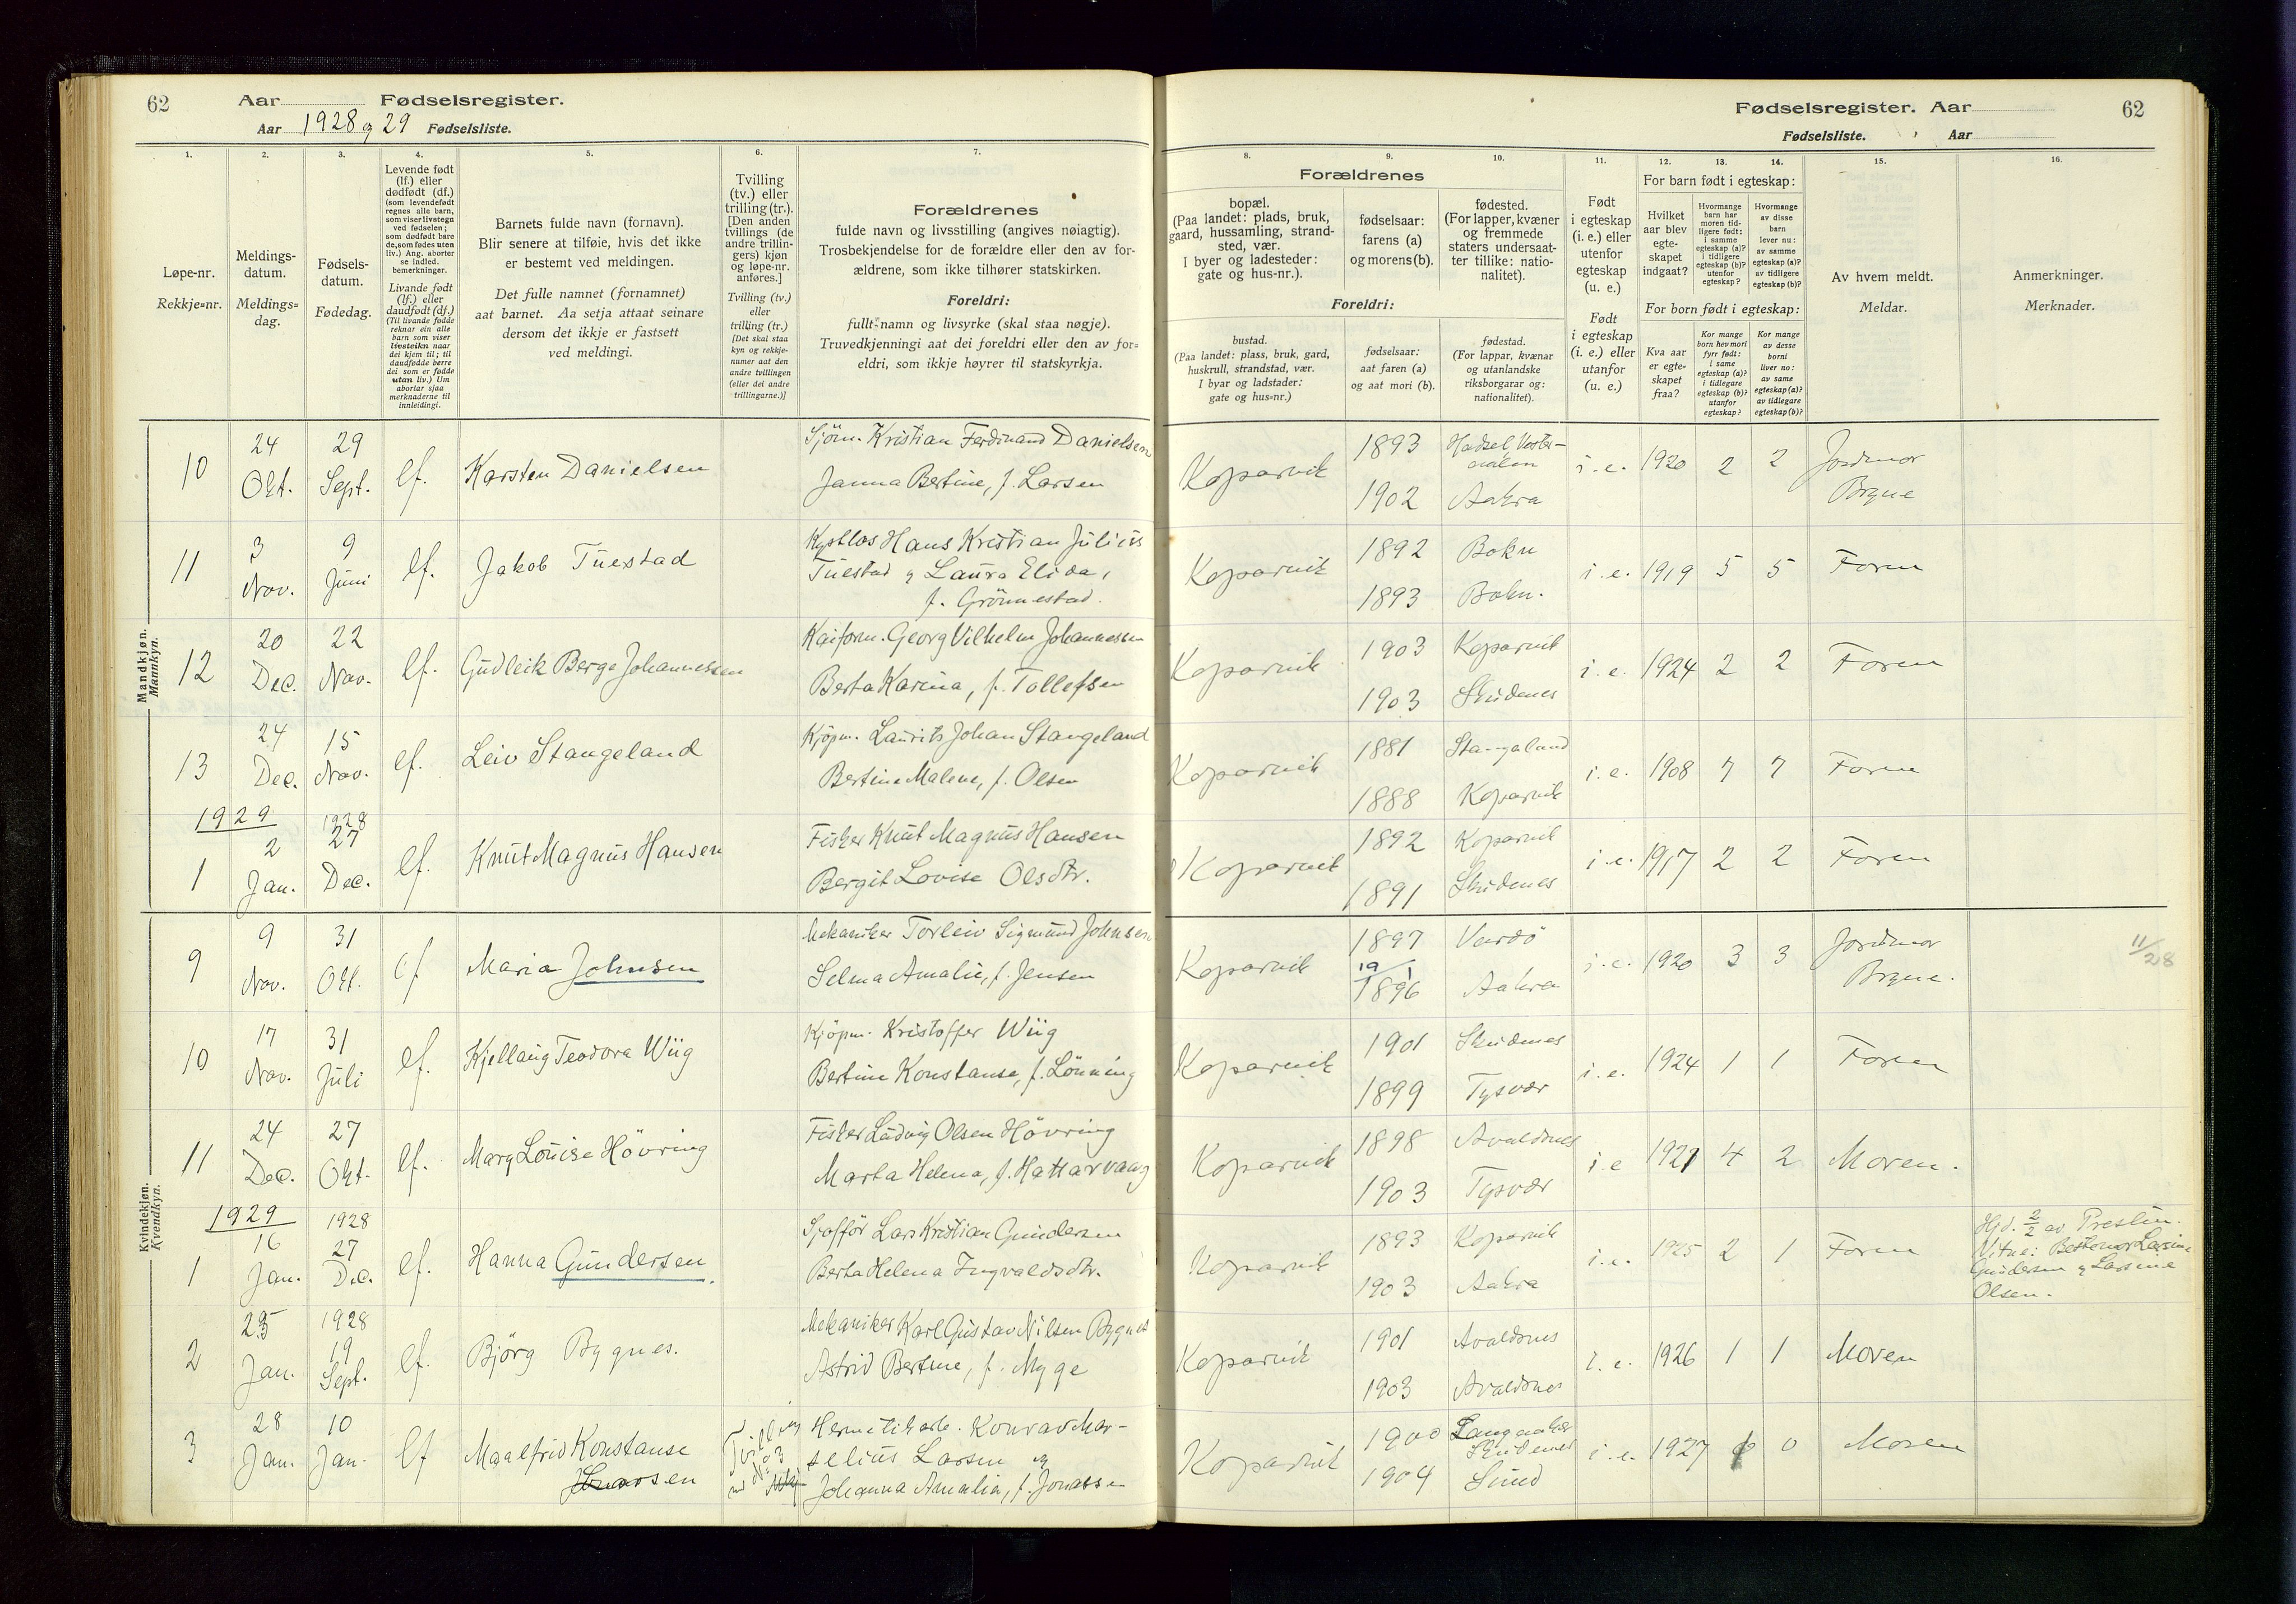 62 Aar Fødselsregister.
Aar 1928 og 29 Fødselsliste.
Fødselsregister. Aar 62
Fødselsliste. Aar
1. 2. 3. 4. 5. 6. 7.
8. 9. 10. 11. 12. 13. 14. 15. 16.
Løpe-nr.
Rekkje-nr.
Meldings-
datum.
Meldings-
dag.
Fødsels-
datum.
Fødedag.
Levende født
(lf.) eller
dødfødt (df.)
(som levendefødt
regnes alle barn,
som viser livstegn
ved fødselen;
som dødfødt bare
de, som fødes uten
liv.) Ang. aborter
se indled.
bemerkninger.
Livande født
(lf.) eller
daudfødt (df.)
(Til livande fødde
reknar ein alle
barn som viser
livsteikn naar
dei kjem til; til
daudfødde berre
dei som er fødde
utan liv.) Um
abortar sjaa
merknaderne til
innleidingi.
Barnets fulde navn (fornavn).
Blir senere at tilføie, hvis det ikke
er bestemt ved meldingen.
Det fulle namnet (fornamnet)
aat barnet. Aa setja attaat seinare
dersom det ikkje er fastsett
ved meldingi.
Tvilling
(tv.) eller
trilling (tr.).
[Den anden
tvillings (de
andre trillin-
gers) kjøn
og løpe-nr.
anføres.]
Tvilling (tv.)
eller
trilling (tr.)
[Det skal staa
kyn og rekkje-
numer aat den
andre tvillingen
(eller dei andre
trillingarne.)]
Forældrenes
fulde navn og livsstilling (angives nøiagtig).
Trosbekjendelse for de forældre eller den av for-
ældrene, som ikke tilhører statskirken.
Foreldri:
fullt namn og livsyrke (skal staa nøgje).
Truvedkjenningi aat dei foreldri eller den av for-
eldri, som ikkje høyrer til statskyrkja.
Forældrenes
bopæl.
(Paa landet: plads, bruk,
gaard, hussamling, strand-
sted, vær.
I byer og ladesteder:
gate og hus-nr.).
fødselsaar:
farens (a)
og morens (b).
fødested.
(For lapper, kvæner
og fremmede
staters undersaat-
ter tillike: natio-
nalitet).
Foreldri:
bustad.
(Paa landet: plass, bruk, gard,
huskrull, strandstad, vær.
I byar og ladstader:
gate og hus-nr.)
fødselsaar:
aat faren (a)
og aat mori (b).
fødestad.
(For lappar, kvænar
og utanlandske
riksborgarar og:
nationalitet).
Født
i egteskap
(i. e.) eller
utenfor
egteskap
(u. e.)
Født
i egteskap
(i. e.) eller
utanfor
(u. e.)
For barn født i egteskap:
Hvilket
aar blev
egte-
skapet
indgaat?
Hvormange
barn har
moren tid-
ligere født:
i samme
egteskap (a)?
i tidligere
egteskap (b)?
utenfor
egteskap?
Hvormange
av disse
barn
lever nu:
av samme
egteskap (a)?
av tidligere
egteskap (b)?
For born født i egteskap:
Kva aar
er egte-
skapet
fraa?
Kor mange
born hev mori
fyrr født:
i same
egteskap (a)?
i tidlegare
egteskap (b)?
utanfor
egteskap?
Kor mange
av desse
borni
liver no:
av same
egteskap (a)?
av tidlegare
egteskap (b)?
Av hvem meldt.
Meldar.
Anmerkninger.
Merknader.
Mandkjøn.
Mannkyn.
10 24 Okt. 29 Sept. lf. Karsten Danielsen
Sjöm. Kristian Ferdinand Danielsen
Janna Bertine, f. Larsen
Kopervik 1893 i. e. 1920 2 2 Jordmor Bryne
1902 Aakra
11 3 Nov. 9 Juni lf. Jakob Tuestad
Hans Kristian Julius
Tuestad og Laura Elida,
f. Grönnestad.
Kopervik 1892 Bokn i. e. 1919 5 5 Faren
1893 Bokn.
12 20 Dec. 22 Nov. lf. Gudleik Berge Johannessen
Kaiform. Georg Vilhelm Johannessen
Berta Karina, f. Tollefsen
Kopervik 1903 Kopervik i. e. 1924 2 2 Faren
1903 Skudenes
13 24 Dec. 15 Nov. lf. Leiv Stangeland
Kjöpm. Laurits Johan Stangeland
Bertine Malene, f. Olsen
Kopervik 1881 Stangaland i. e. 1908 7 7 Faren
1888 Kopervik
1929 1928
1 2 Jan. 27 Dec. lf. Knut Magnus Hansen
Fisker Knut Magnus Hansen
Bergit Lovise Olsdtr.
Kopervik 1892 Kopervik i. e. 1917 2 2 Faren
1891 Skudenes
Kvindekjøn.
Kvendkyn.
9 9 Nov. 31 Okt. lf Maria Johnsen
Mekaniker Torleiv Sigmund Johnsen
Selma Amalie, f. Jensen
Kopervik 1897 Vardö i. e. 1920 3 3 Jordmor Bryne. 11/28
19/1 1896 Aakra
10 17 Nov. 31 Juli lf. Kjellaug Teodora Wiig
Kjöpm. Kristoffer Wiig
Bertine Konstanse, f. Lönning
Kopervik 1901 Skudenes i. e. 1924 1 1 Faren
1899 Tysvær
11 24 Dec. 27 Okt. lf. Mary Louise Hövring
Fisker Ludvig Olsen Hövring
Marta Helena, f. Hattarvaag
Kopervik 1898 Avaldsnes i. e 1921 4 2 Moren.
1903 Tysvær
1929 1928
1 16 Jan. 27 Dec. lf. Hanna Gundersen.
Sjafför Lars Kristian Gundersen
Berta Helena Ingvaldsdtr.
Kopervik 1893 Kopervik i. e. 1925 2 1 Faren
1903 Aakra
Hjd. 2/2 av Presten.
Vitne: Bestemor Lasine
Gundersen og Larsine
Olsen.
2 25 Jan. 1928 19 Sept. lf. Björg Bygnes.
Mekaniker Karl Gustav Nilsen Bygnes
Astrid Bertine, f. Mygge
Kopervik 1901 Avaldsnes i. e. 1926 1 1 Moren
1903 Avaldsnes
3 28 Jan. 10 Jan. lf Maalfrid Konstanse
Larsen
Tvilling
Hermetikarb. Konrad Mar-
selius Larsen og
Johanna Amalia, f. Jonassen
Kopervik 1900 Skudenes i. e. 1927 0 0 Moren
1904 Sund